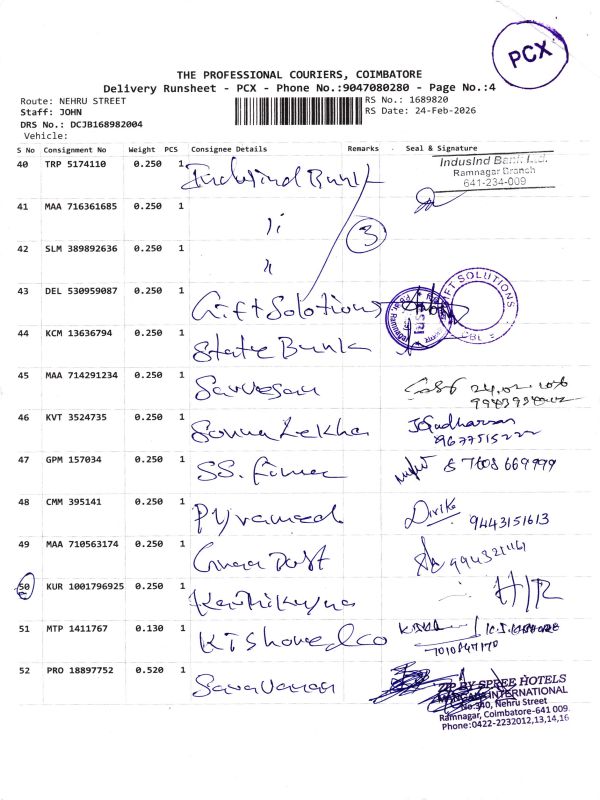 PCX
THE PROFESSIONAL COURIERS, COIMBATORE
Delivery Runsheet - PCX - Phone No.:9047080280 - Page No.:4
Route: NEHRU STREET
RS No.: 1689820
Staff: JOHN
RS Date: 24-Feb-2026
DRS No.: DCJB168982004
Vehicle:
S No Consignment No Weight PCS Consignee Details Remarks . Seal & Signature
40 TRP 5174110 0.250 1 IndusInd Bank
IndusInd Bank Ltd.
Ramnagar Branch
641-234-009
41 MAA 716361685 0.250 1 "
3
42 SLM 389892636 0.250 1 "
43 DEL 530959087 0.250 1 Gift Solotions
GIFT SOLUTIONS
Ramnagar
44 KCM 13636794 0.250 1 State Bank
45 MAA 714291234 0.250 1 Sarvesan
46 KVT 3524735 0.250 1 Sonna Lekha
9677515222
47 GPM 157034 0.250 1 SS.
7608669999
48 CMM 395141 0.250 1 Pyrameed
9443151613
49 MAA 710563174 0.250 1
50 KUR 1001796925 0.250 1 H/R
51 MTP 1411767 0.130 1
52 PRO 18897752 0.520 1 Saravanan
BY SPREE HOTELS
INTERNATIONAL
No:340, Nehru Street
Ramnagar, Coimbatore-641 009.
Phone:0422-2232012,13,14,16